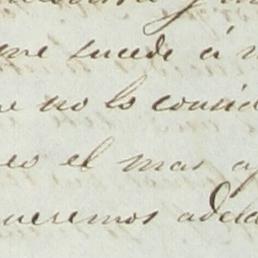 me sucede á
no lo consid
eo el mas a
queremos adela